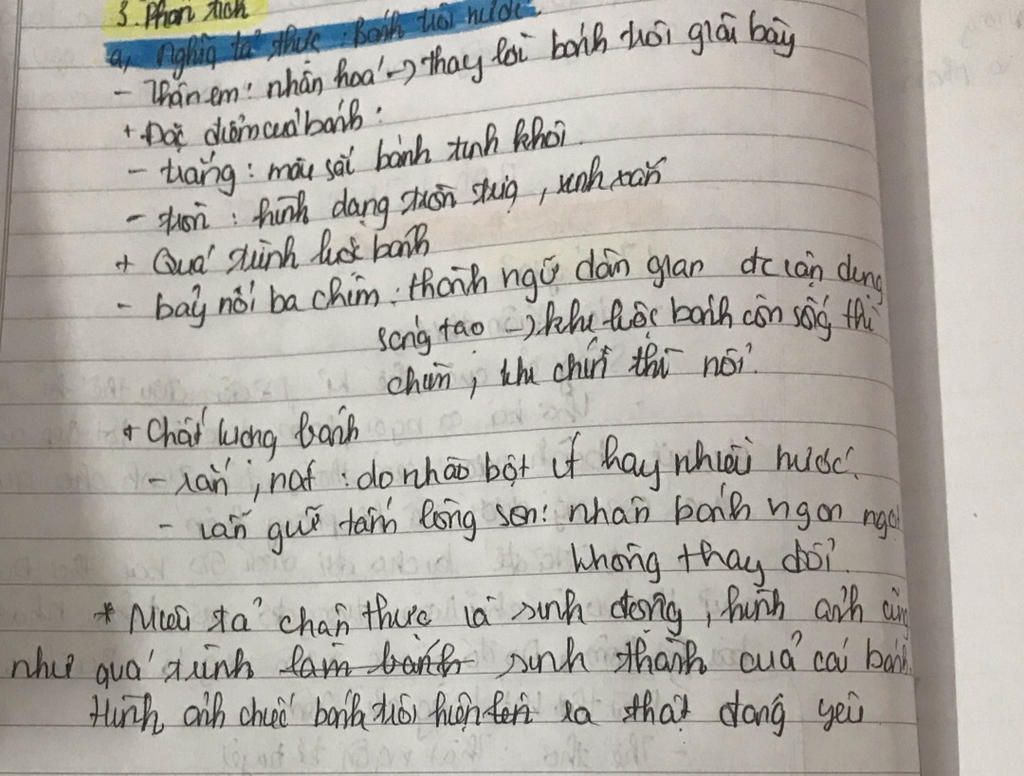 3. Phân tích
a, Nghĩa tả thực: Bánh trôi nước.
- Thân em: nhân hoá -> thay lời bánh trôi giãi bày
+ Đặc điểm của bánh:
- trắng: màu sắc bánh tinh khôi
- tròn: hình dạng tròn trịa, xinh xắn
+ Quá trình luộc bánh
- bảy nổi ba chìm: thành ngữ dân gian đc vận dụng
sáng tạo -> khi luộc bánh còn sống thì
chìm, khi chín thì nổi.
+ Chất lượng bánh
- rắn, nát: do nhào bột ít hay nhiều nước.
- vẫn giữ tấm lòng son: nhân bánh ngon ngọt
không thay đổi.
* Miêu tả chân thực và sinh động, hình ảnh cũng
như quá trình làm bánh sinh thành của cái bánh.
Hình ảnh chiếc bánh trôi hiện lên ra thật đáng yêu